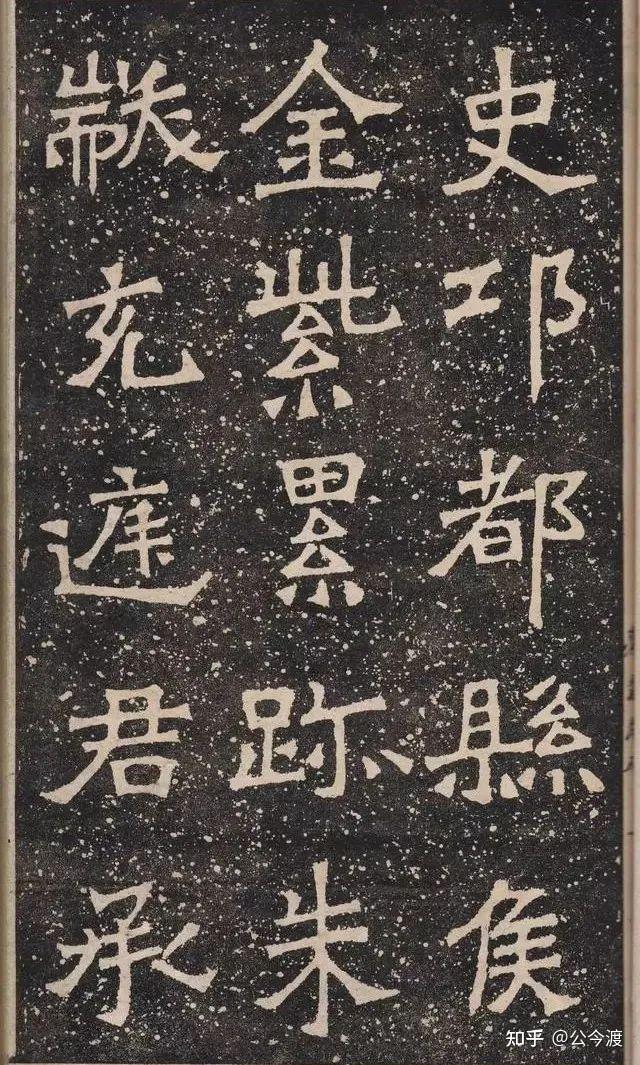 史邛都縣侯
金紫累跡朱
黻充庭君承
知乎 @公今渡